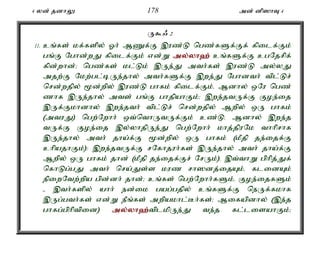 லன் தனாலூ 178 அன் னிஸாஃ
ருகூஃ 2
11. உங்கள் மக்களில் ஓர் ஆணுக்கு இரண்டு பெண்களுக்குக் கிடைக்கும்
பங்கு போன்றது கிடைக்கும் என்று அல்லாஹ் உங்களுக்கு உபதேசிக்
கின்றான்; பெண்கள் மட்டும் இருந்து அவர்கள் இரண்டு அல்லது
அதற்கு மேற்பட்டிருந்தால் அவர்களுக்கு இறந்து போனவர் விட்டுச்
சென்றதில் மூன்றில் இரண்டு பாகம் கிடைக்கும். ஆனால் ஒரே பெண்
ணாக இருந்தால் அவள் பங்கு பாதியாகும்; இறந்தவருக்கு குழந்தை
இருக்குமானால் இறந்தவர் விட்டுச் சென்றதில் ஆறில் ஒரு பாகம்
(அவரது) பெற்றோர் ஒவ்வொருவருக்கும் உண்டு; ஆனால் இறந்த
வருக்கு குழந்தை இல்லாதிருந்து பெற்றோர் மாத்திரமே வாரிசாக
இருந்தால் அவர் தாய்க்கு மூன்றில் ஒரு பாகம் (மீதி தந்தைக்கு
உரியதாகும்); இறந்தவருக்கு சகோதரர்கள் இருந்தால் அவர் தாய்க்கு
ஆறில் ஒரு பாகம் தான் (மீதி தந்தைக்குச் சேரும்). இவ்வாறு பிரித்துக்
கொடுப்பது அவர் செய்துள்ள மரண சாஸனத்தையும், கடனையும்
நிறைவேற்றிய பின்னர் தான்; உங்கள் பெற்றோர்களும், குழந்தைகளும்
- இவர்களில் யார் நன்மை பயப்பதில் உங்களுக்கு நெருக்கமாக
இருப்பவர்கள் என்று நீங்கள் அறியமாட்டீர்கள்; ஆகையினால் (இந்த
பாகப்பிரிவினை) அல்லாஹ்விடமிருந்து வந்த கட்டளையாகும்;